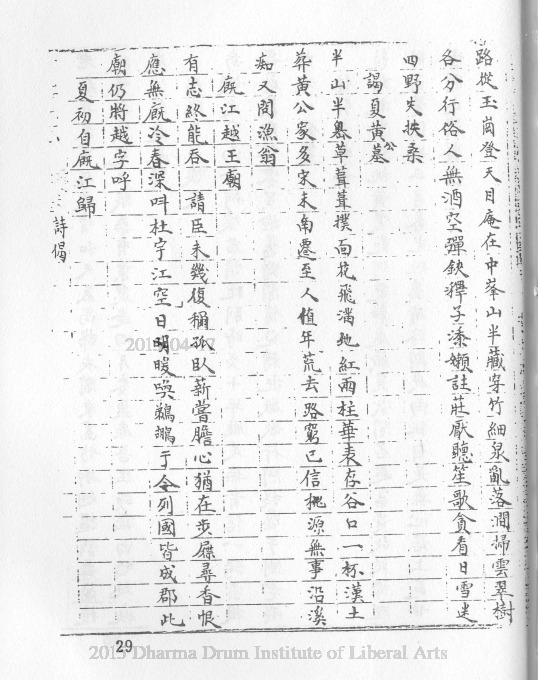 路從玉崗登天目庵在中峯山半藏穿竹細泉亂落澗掃雲翠樹
各分行俗人無酒空彈鋏澤子漆嬾註莊厭聽笙歌貪看日雪迷
四野失扶桑
謁夏黃公墓
半山半縣草葺葺撲面花飛滿地紅兩柱華表存谷口一抔漢土
葬黃公家多宋末南遷至人值年荒去路窮已信桃源無事沿溪
痴又問漁翁
廐江越王廟
有志終能吞 請臣未幾復稱孤臥薪嘗膽心猶在步屧尋香恨
應無廐冷春深叫杜宇江空日明暖喚鵜鶘于今列國皆成郡此
廟仍將越字呼
夏初自廐江歸
詩偈
29
2015 Dharma Drum Institute of Liberal Arts